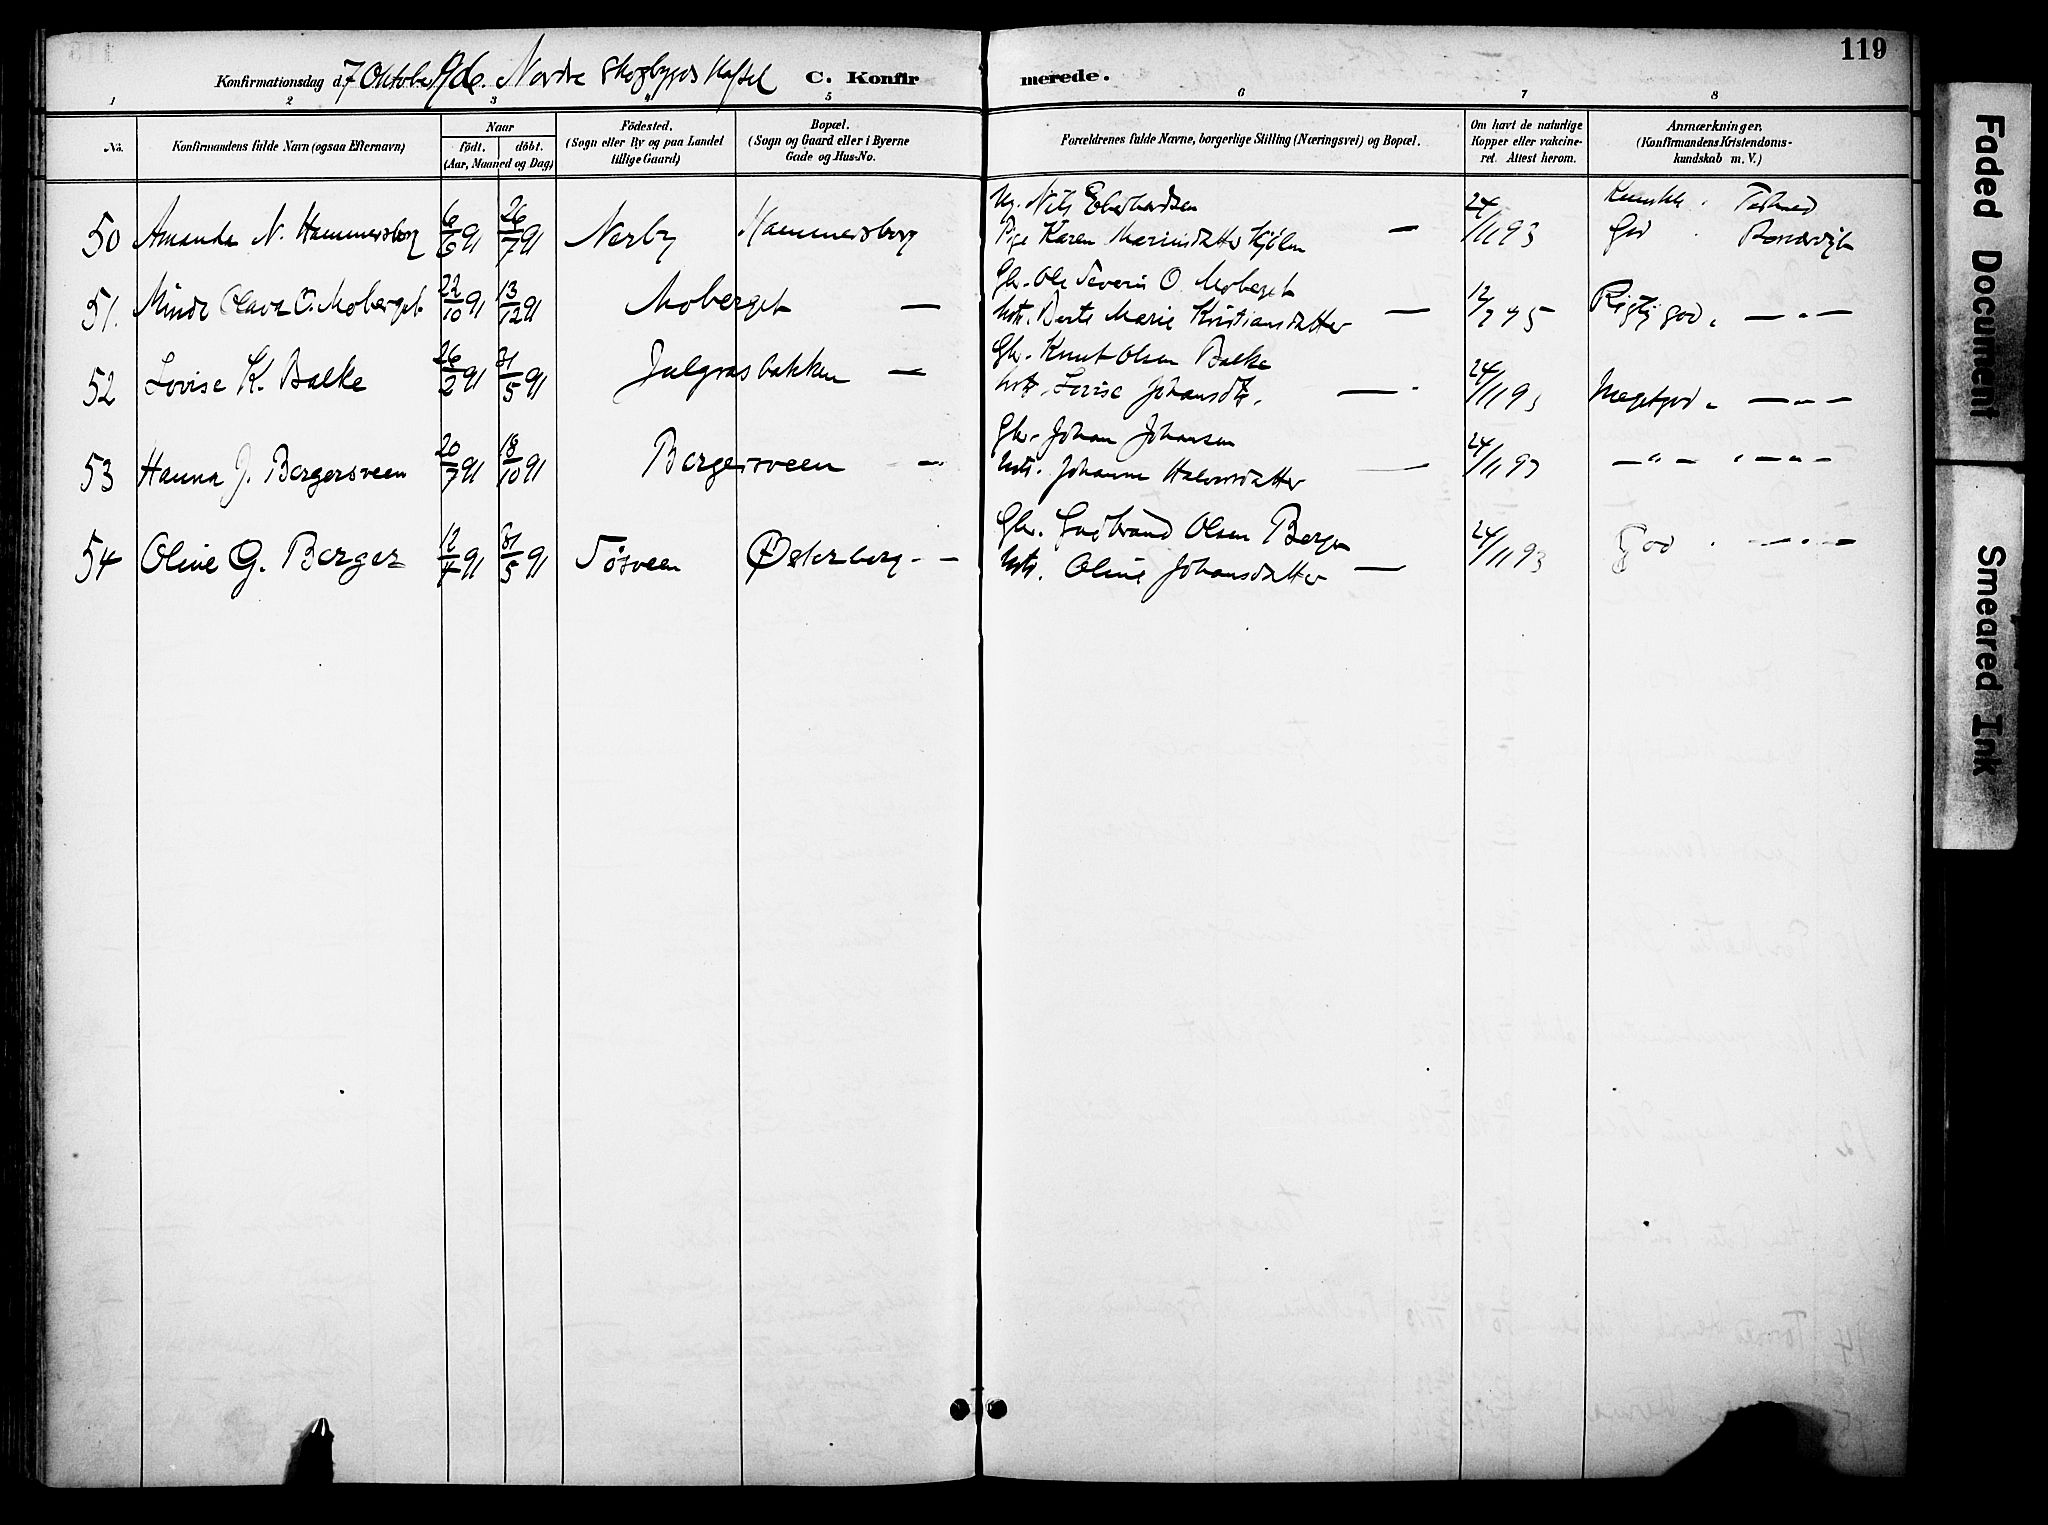 119
Konfirmationsdag d. 7 Oktober 1906. Nordre Skogbygds Kapel C. Konfirmerede.
1 2 3 4 5 6 7 8
No. Konfirmandens fulde Navn (ogsaa Efternavn) Naar födt. döbt. (Aar, Maaned og Dag) Födested. (Sogn eller By og paa Landet tillige Gaard) Bopæl. (Sogn og Gaard eller i Byerne Gade og Hus-No. Forældrenes fulde Navne, borgerlige Stilling (Næringsvei) og Bopæl. Om havt de naturlige Kopper eller vakcineret. Attest herom. Anmærkninger. (Konfirmandens Kristendomskundskab m. V.)
50 Amanda N. Hammersborg 6/6 91 26/7 91 Nerby Hammersborg Ug. Nils Eberhardsen
Pige Karen Marinsdatter Kjølen — 24/11 93 Kundsk. God
51. Minda Olava O. Moberget 22/10 91 13/12 91 Moberget — Gbr. Ole Severin O. Moberget
Hstr. Berte Marie Kristiansdatter — 12/7 95 Rigtig god " — " —
52 Lovise K. Balke 26/2 91 31/5 91 Julgrasbakken — Gbr. Knut Olsen Balke
Hstr. Lovise Johansdtr. — 24/11 93 Meget god " — " —
53 Hanna J. Bergersveen 20/7 91 18/10 91 Bergersveen — Gbr. Johan Johansen
Hstr. Johanne Halvorsdatter — 24/11 93 — " — " — " —
54 Oline G. Berger 12/4 91 31/5 91 Tösveen Østerberg — Gbr. Gudbrand Olsen Berger
Hstr. Oline Johansdatter — 24/11 93 God " — " —
Faded Document
Smeared Ink